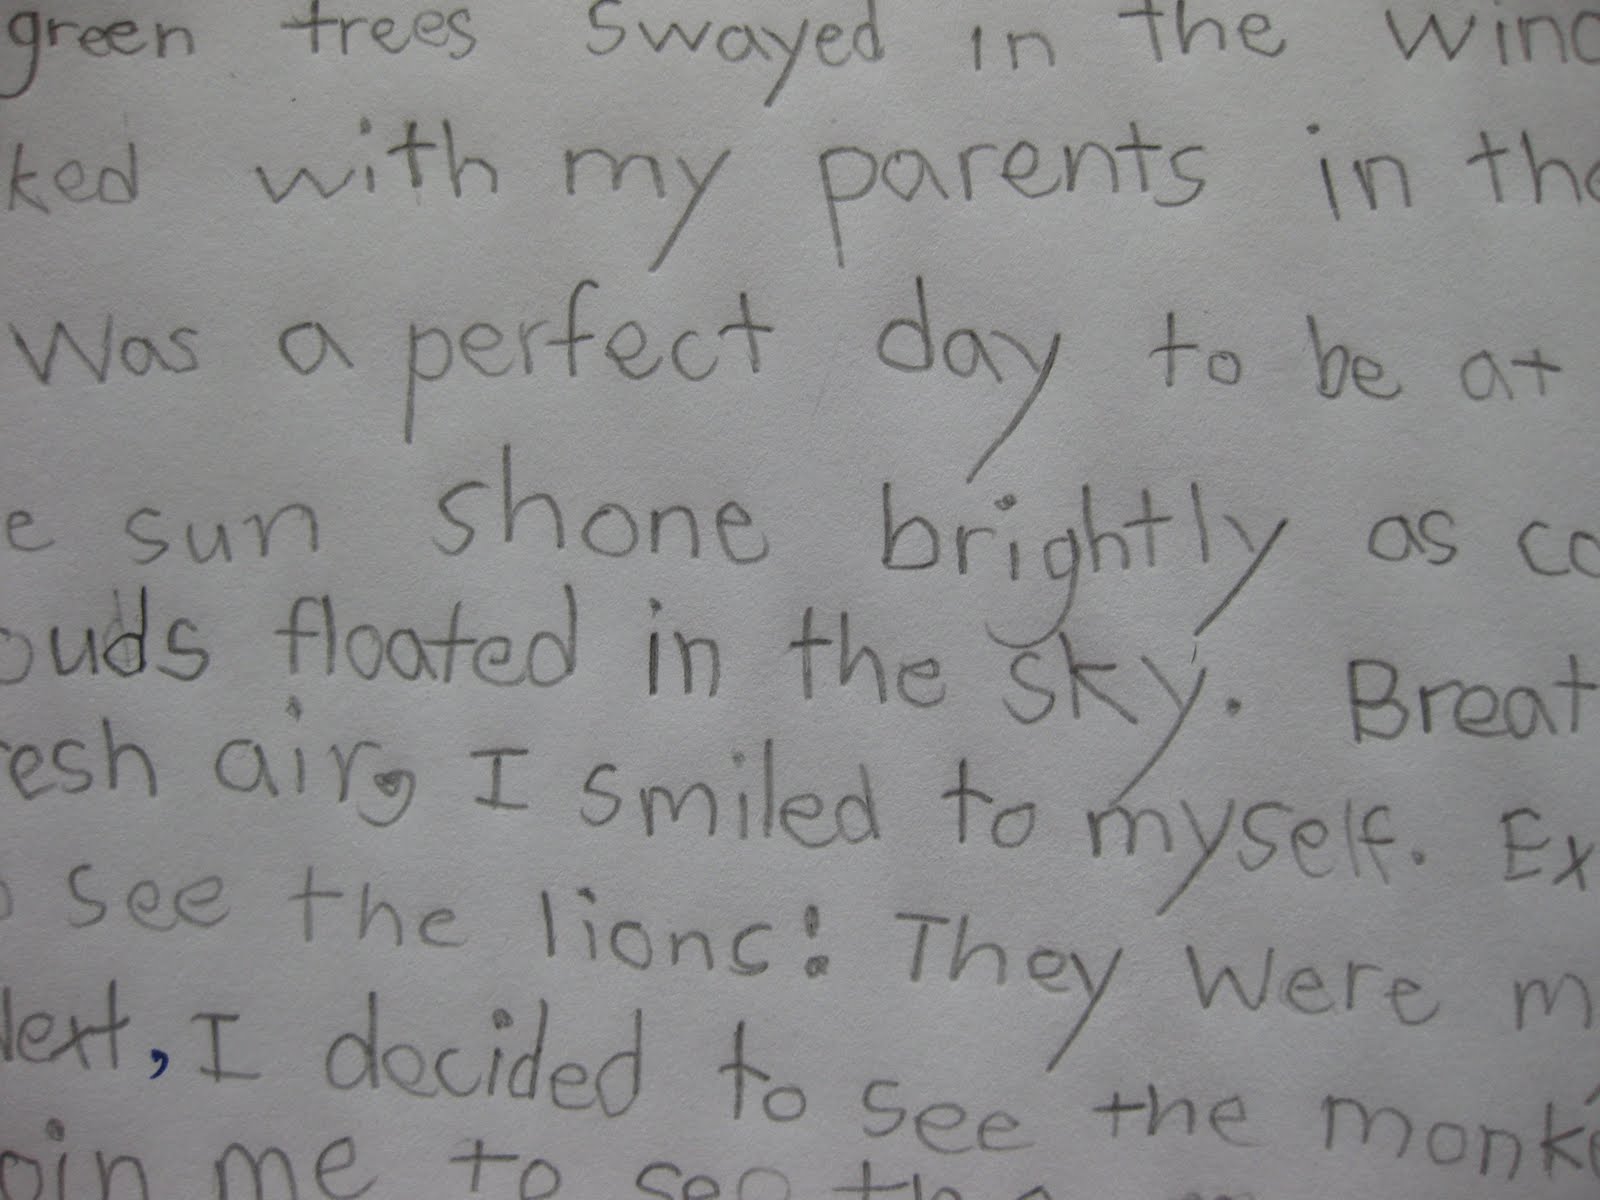 green trees swayed in the wind
ked with my parents in the
was a perfect day to be at
e sun shone brightly as co
ouds floated in the sky. Breat
resh air, I smiled to myself. Ex
o see the lions! They were m
Next, I decided to see the monke
oin me to see the